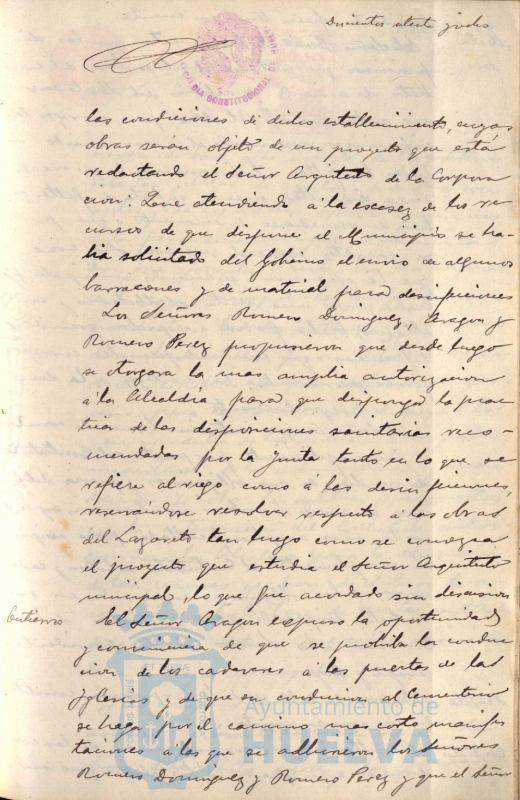 Doscientos ochenta y ocho
ALCALDIA CONSTITUCIONAL DE HUELVA
las condiciones de dicho establecimiento, cuyas
obras serán objeto de un proyecto que está
redactando el Señor Arquitecto de la Corpora
cion: Que atendiendo á la escasez de los re
cursos de que dispone el Municipio se ha-
bia solicitado del Gobierno el envio de algunos
barracones y de material para desinfecciones
Los Señores Romero Dominguez, Aragon y
Romero Perez propusieron que desde luego
se otorgara la mas amplia autorizacion
á la Alcaldía para que disponga la prac
tica de las disposiciones sanitarias reco-
mendadas por la Junta tanto en lo que se
refiere al riego como á las desinfecciones,
reservandose resolver respecto á las obras
del Lazareto tan luego como se conozca
el proyecto que estudia el Señor Arquitecto
municipal, lo que fué acordado sin discusion
El Señor Aragon expuso la oportunidad
y conveniencia de que se prohiba la conduc
cion de los cadaveres á las puertas de las
Iglesias y de que su conduccion al Cementerio
se haga por el camino mas corto manifes
taciones á las que se adhirieron los Señores
Romero Dominguez y Romero Perez y que el Señor
Ayuntamiento de
HUELVA